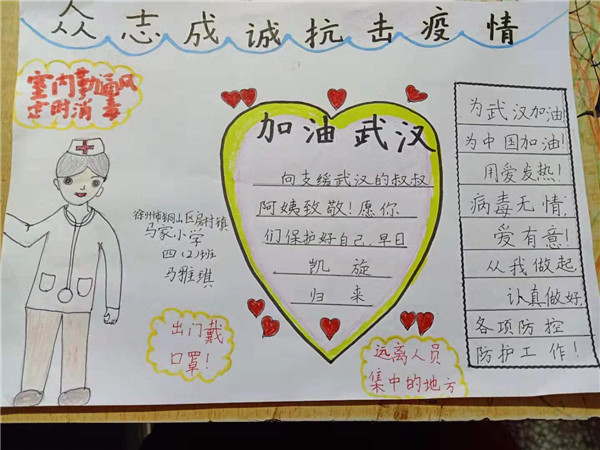 众志成诚抗击疫情
室内勤通风
定时消毒
加油武汉
向支缓武汉的叔叔
阿姨致敬!愿你
们保护好自己,早日
凯旋
归来
徐州市铜山区房村镇
马家小学
四(2)班
马雅琪
出门戴
口罩!
远离人员
集中的地方
为武汉加油!
为中国加油!
用爱发热!
病毒无情,
爱有意!
从我做起,
认真做好,
各项防控
防护工作!